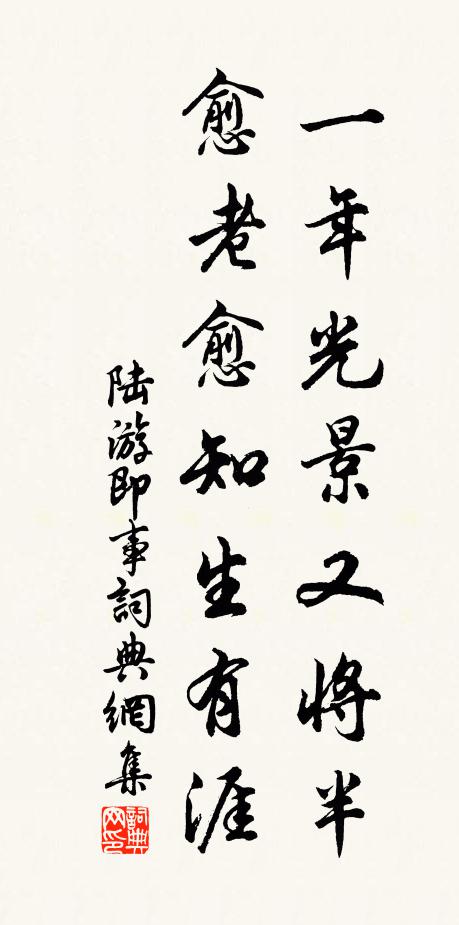 一年光景又將半
愈老愈知生有涯
陆游即事詞典網集
詞典网印